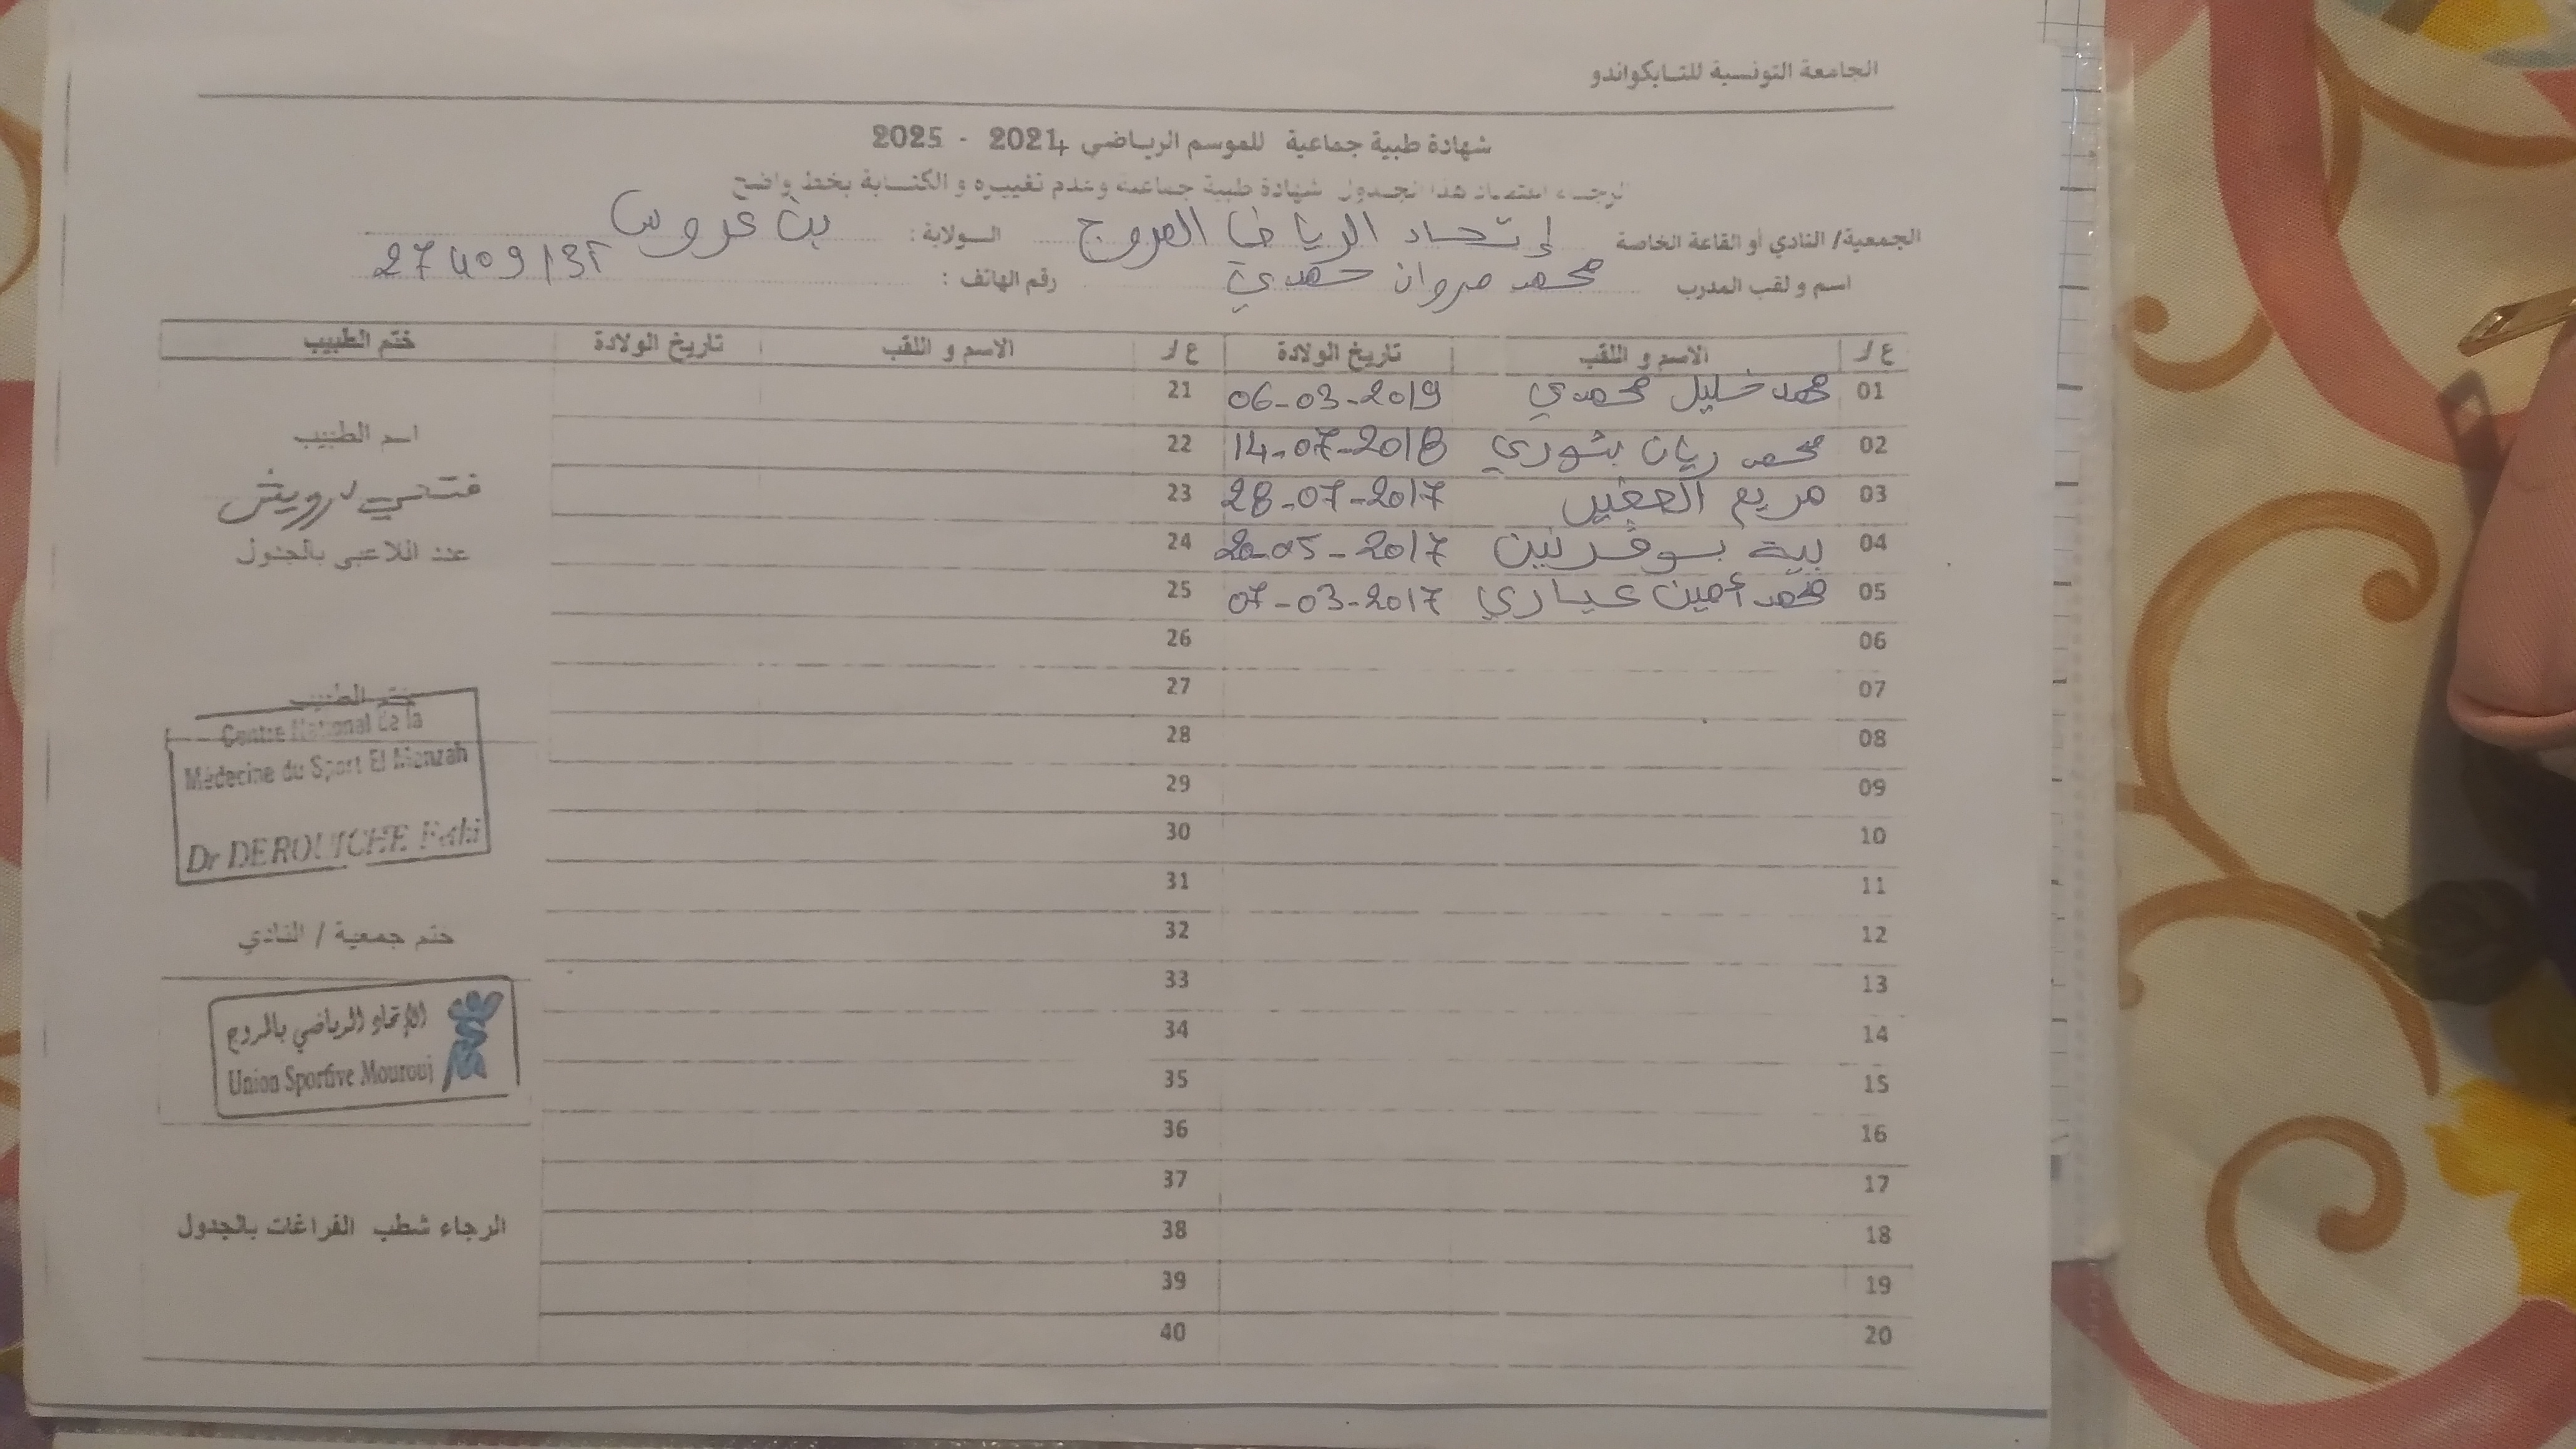 الجامعة التونسية للتايكواندو
شهادة طبية جماعية للموسم الرياضي 2024 - 2025
الرجاء اعتماد هذا الجدول شهادة طبية جماعية وعدم تغييره و الكتابة بخط واضح
الجمعية/ النادي أو القاعة الخاصة إتحاد الرياضي المروج الولاية : بن عروس
اسم و لقب المدرب محمد مروان حمدي رقم الهاتف : 27409132
ع/ر الاسم و اللقب تاريخ الولادة ع/ر الاسم و اللقب تاريخ الولادة ختم الطبيب
01 محمد خليل محمدي 06-03-2019 21
02 محمد ريان بثوري 14-07-2018 22
اسم الطبيب
03 مريم 28-07-2017 23
فتحي درويش
04 بية بوقرنين 20-05-2017 24
عدد اللاعبي بالجدول
05 محمد أمين عياري 07-03-2017 25
06 26
07 27
ختم الطبيب
Centre National de la
Médecine du Sport El Menzah
Dr DEROUICHE Fethi
08 28
09 29
10 30
11 31
12 32
ختم جمعية / النادي
13 33
الإتحاد الرياضي بالمروج
Union Sportive Mourouj
14 34
15 35
16 36
17 37
18 38
الرجاء شطب الفراغات بالجدول
19 39
20 40